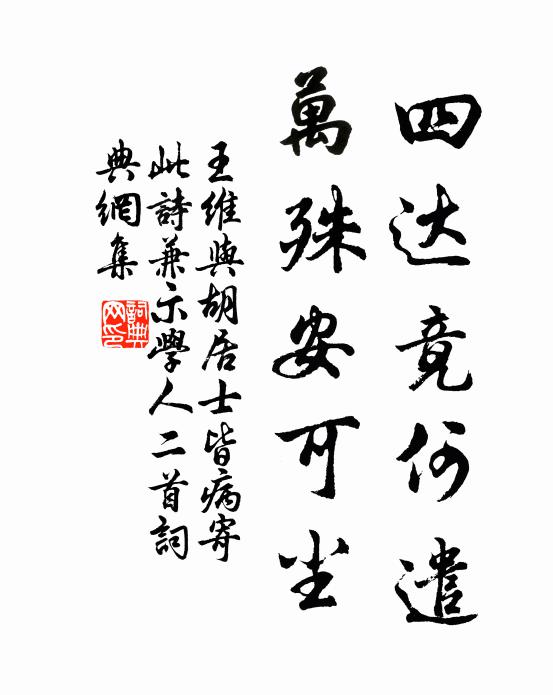 四达竟何遣
萬殊安可尘
王維與胡居士皆病寄
此詩兼示學人二首詞
典網集
詞典网印